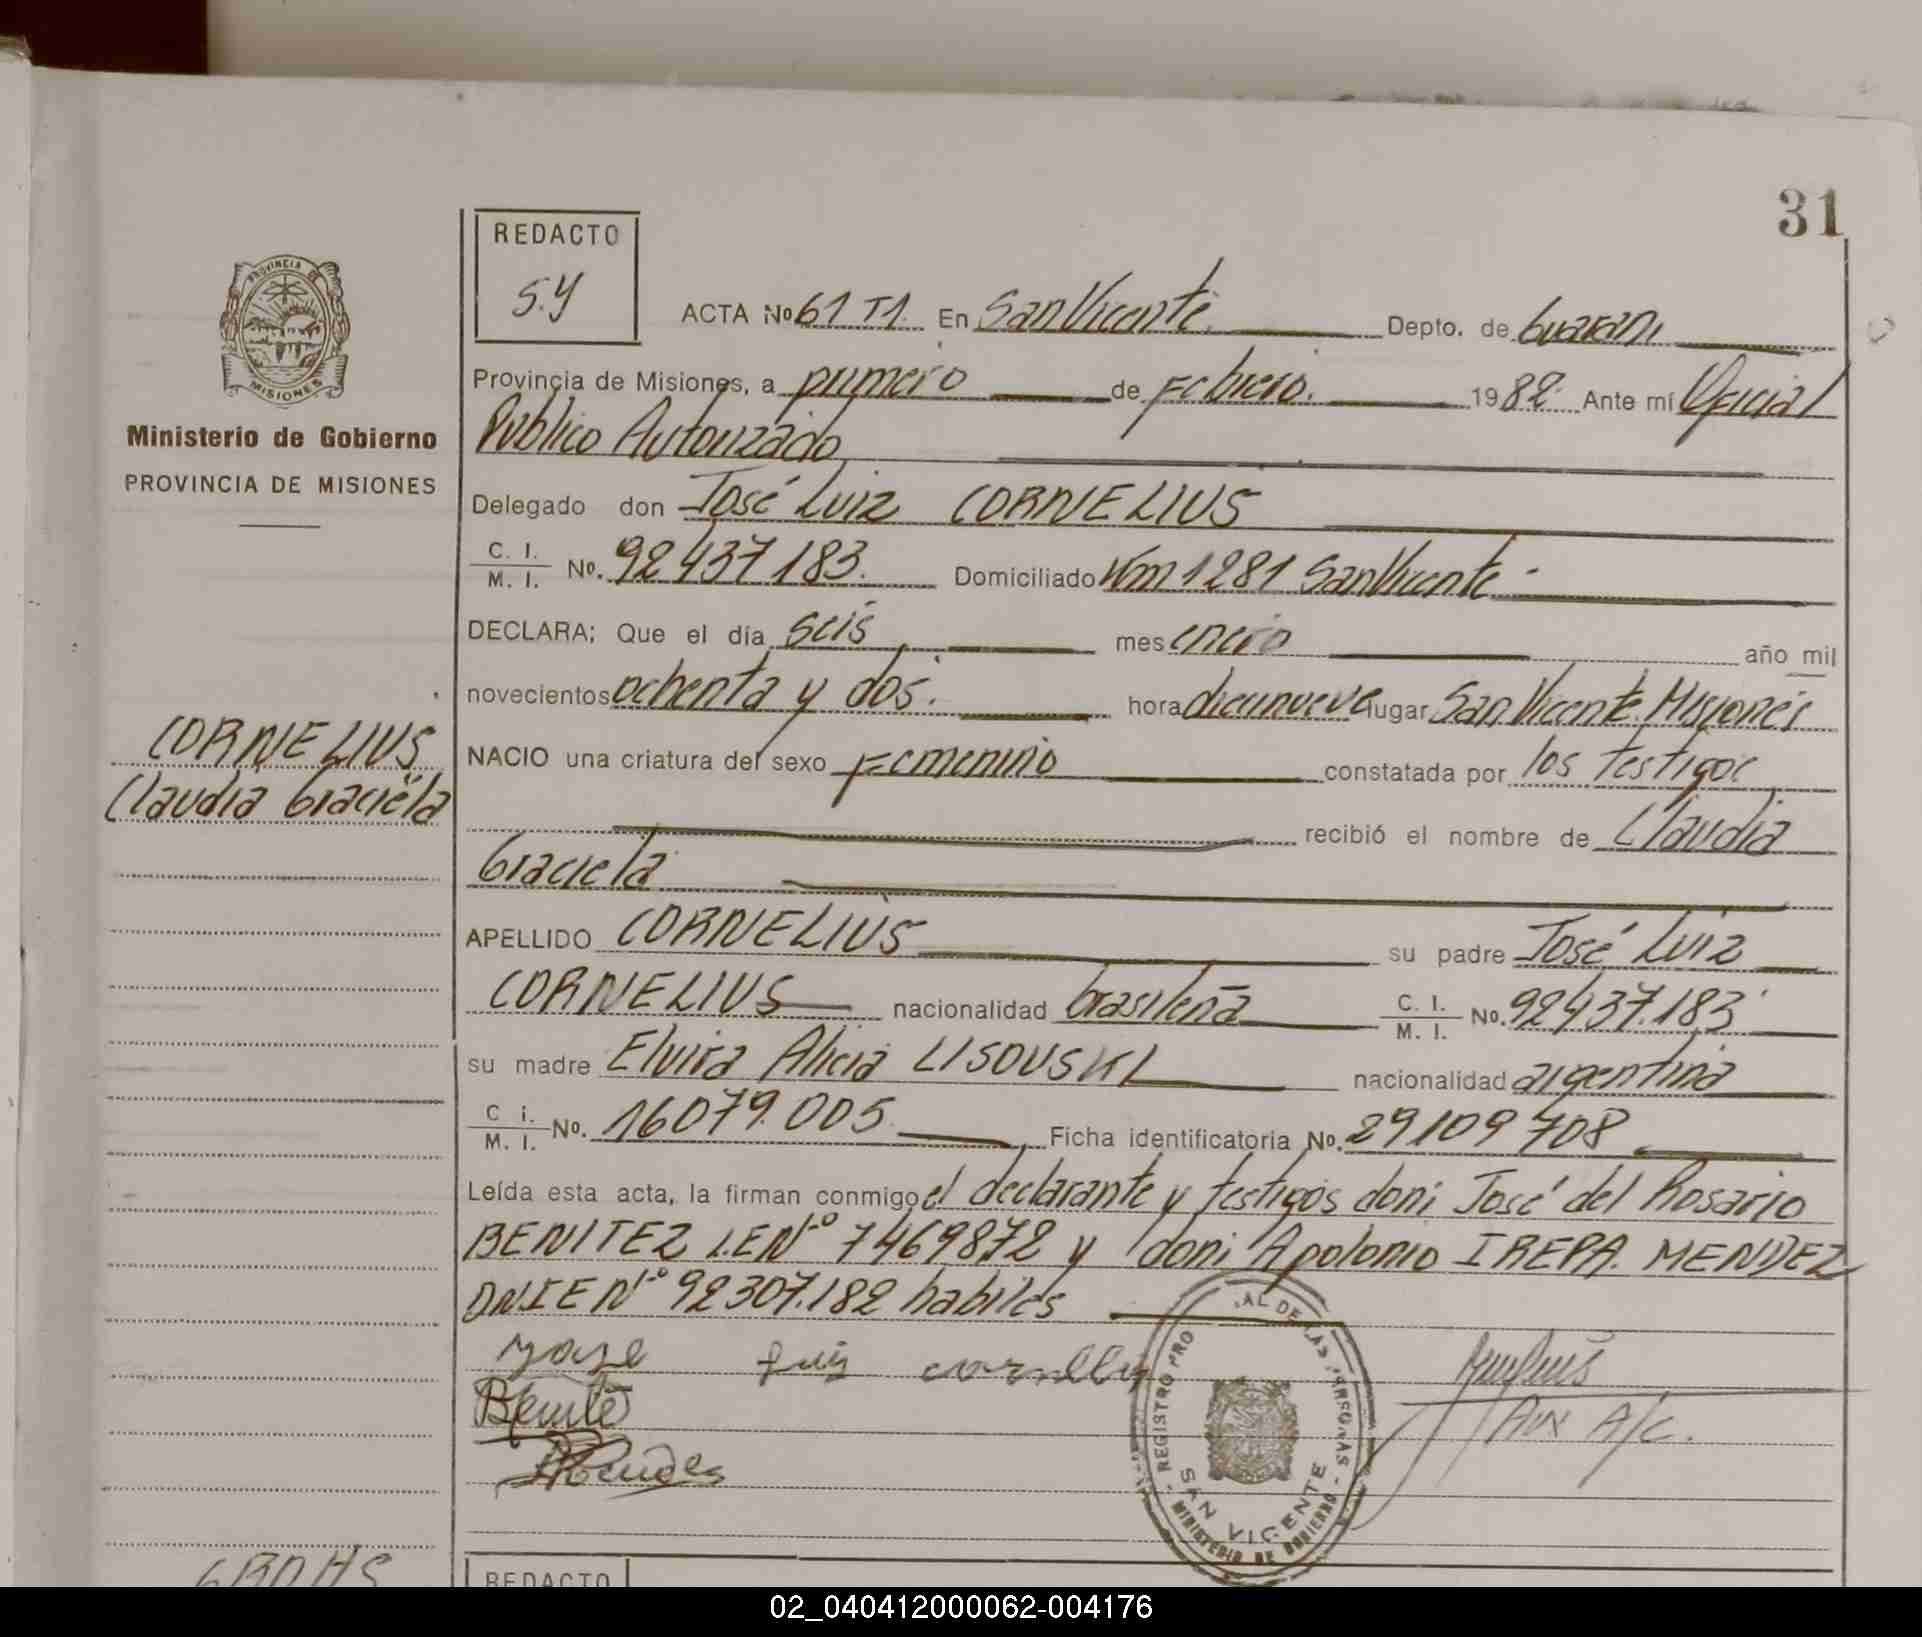 31
REDACTO
S.Y
PROVINCIA DE
MISIONES
Ministerio de Gobierno
PROVINCIA DE MISIONES
ACTA No 61 T1. En San Vicente Depto. de Guarani
Provincia de Misiones, a primero de Febrero. 1982. Ante mí Oficial
Publico Autorizado
Delegado don José Luiz CORNELIUS
C. I.
M. I. No. 92437183. Domiciliado Km 1281 San Vicente
DECLARA: Que el día seis mes enero año mil
novecientos ochenta y dos. hora diecinueve lugar San Vicente Misiones
CORNELIUS
Claudia Graciela
NACIO una criatura del sexo Femenino constatada por los testigos
recibió el nombre de Claudia
Graciela
APELLIDO CORNELIUS su padre José Luiz
CORNELIUS nacionalidad brasileña C. I.
M. I. No. 92437.183
su madre Elvira Alicia LISOUSKI nacionalidad argentina
C i.
M. I. No. 16079.005 Ficha identificatoria No. 29109708
Leída esta acta, la firman conmigo el declarante y testigos don: José del Rosario
BENITEZ L.E Nº 7469872 y don: Apolonio IREPA. MENDEZ
DNIE Nº 92307.182 habiles
yose luis
Benite
Mendes
Aux A/C.
REGISTRO PRO AL DE LAS PERSONAS
SAN VICENTE
MINISTERIO DE GOBIERNO
REDACTO
02_040412000062-004176